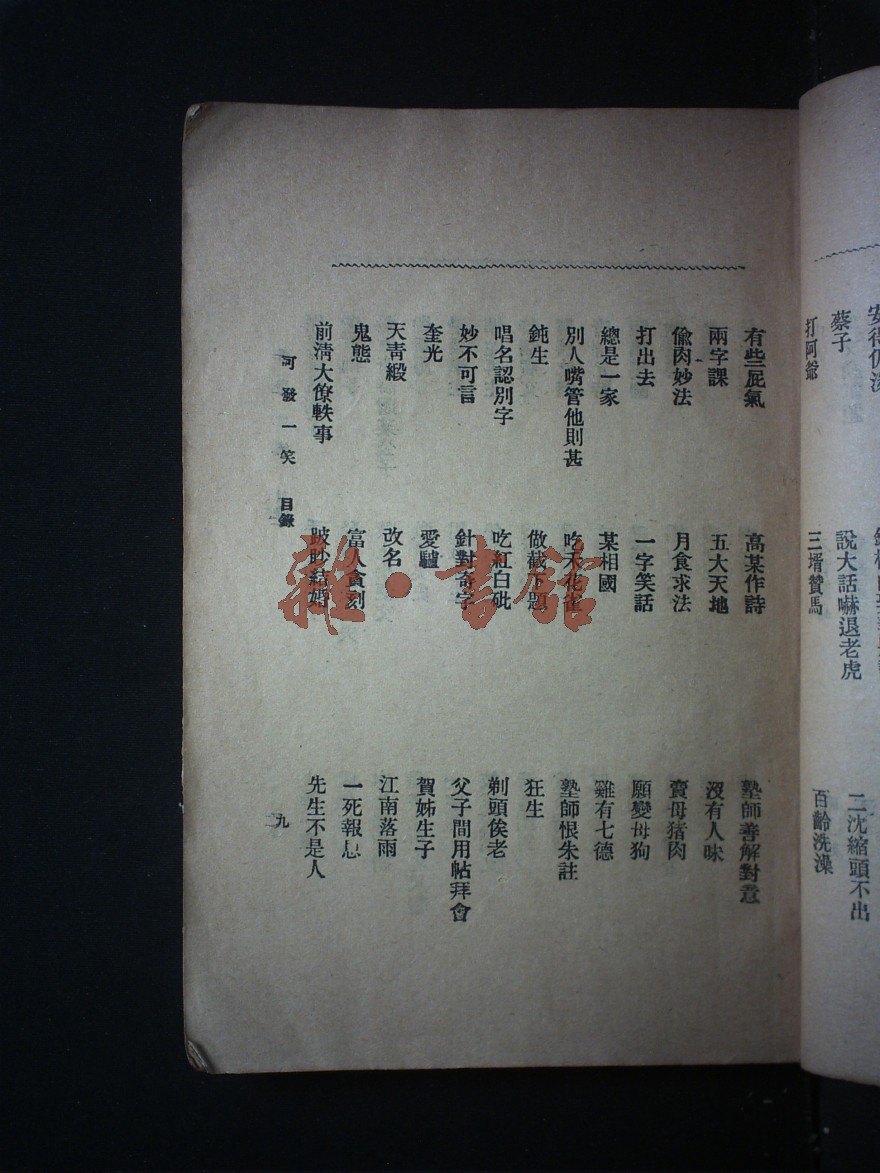 安得仍深
蔡子
說大話嚇退老虎
二沈縮頭不出
打阿爺
三壻贊馬
百齡洗澡
有些屁氣
高某作詩
塾師善解對意
兩字課
五大天地
沒有人味
偸肉妙法
月食求法
賣母猪肉
打出去
一字笑話
願變母狗
總是一家
某相國
雞有七德
別人嘴管他則甚
吃禾花雀
塾師恨朱註
鈍生
做截下題
狂生
唱名認別字
吃紅白砒
剃頭俟老
妙不可言
針對奇字
父子間用帖拜會
奎光
愛驢
賀姊生子
天靑緞
改名
江南落雨
鬼態
富人貪刻
一死報息
前淸大僚軼事
跛眇結婚
先生不是人
可發一笑 目錄
九
雜·書館